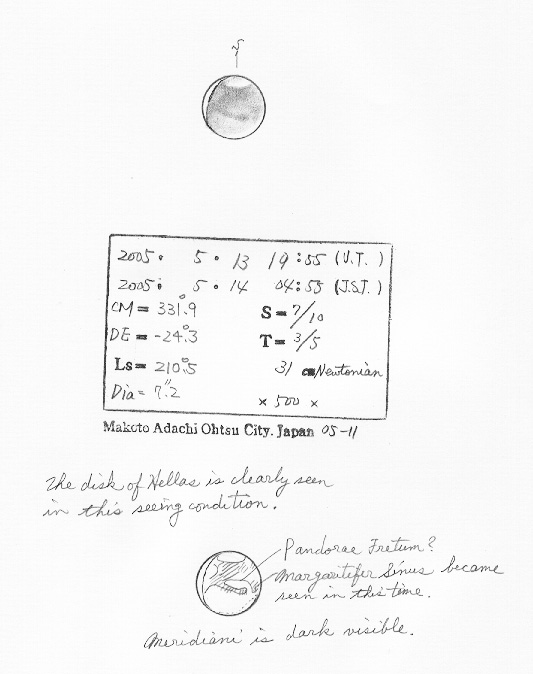 Sγ
2005. 5. 13 19:55 (U.T.)
2005. 5. 14 04:55 (J.S.T.)
CM = 331.°9 S = 7/10
DE = -24.°3 T = 3/5
Ls = 210.°5 31 cm Newtonian
Dia = 7."2 × 500 ×
Makoto Adachi Ohtsu City. Japan 05-11
The disk of Hellas is clearly seen
in this seeing condition.
Pandorae Fretum?
Margaritifer Sinus became
seen in this time.
Meridiani is dark visible.